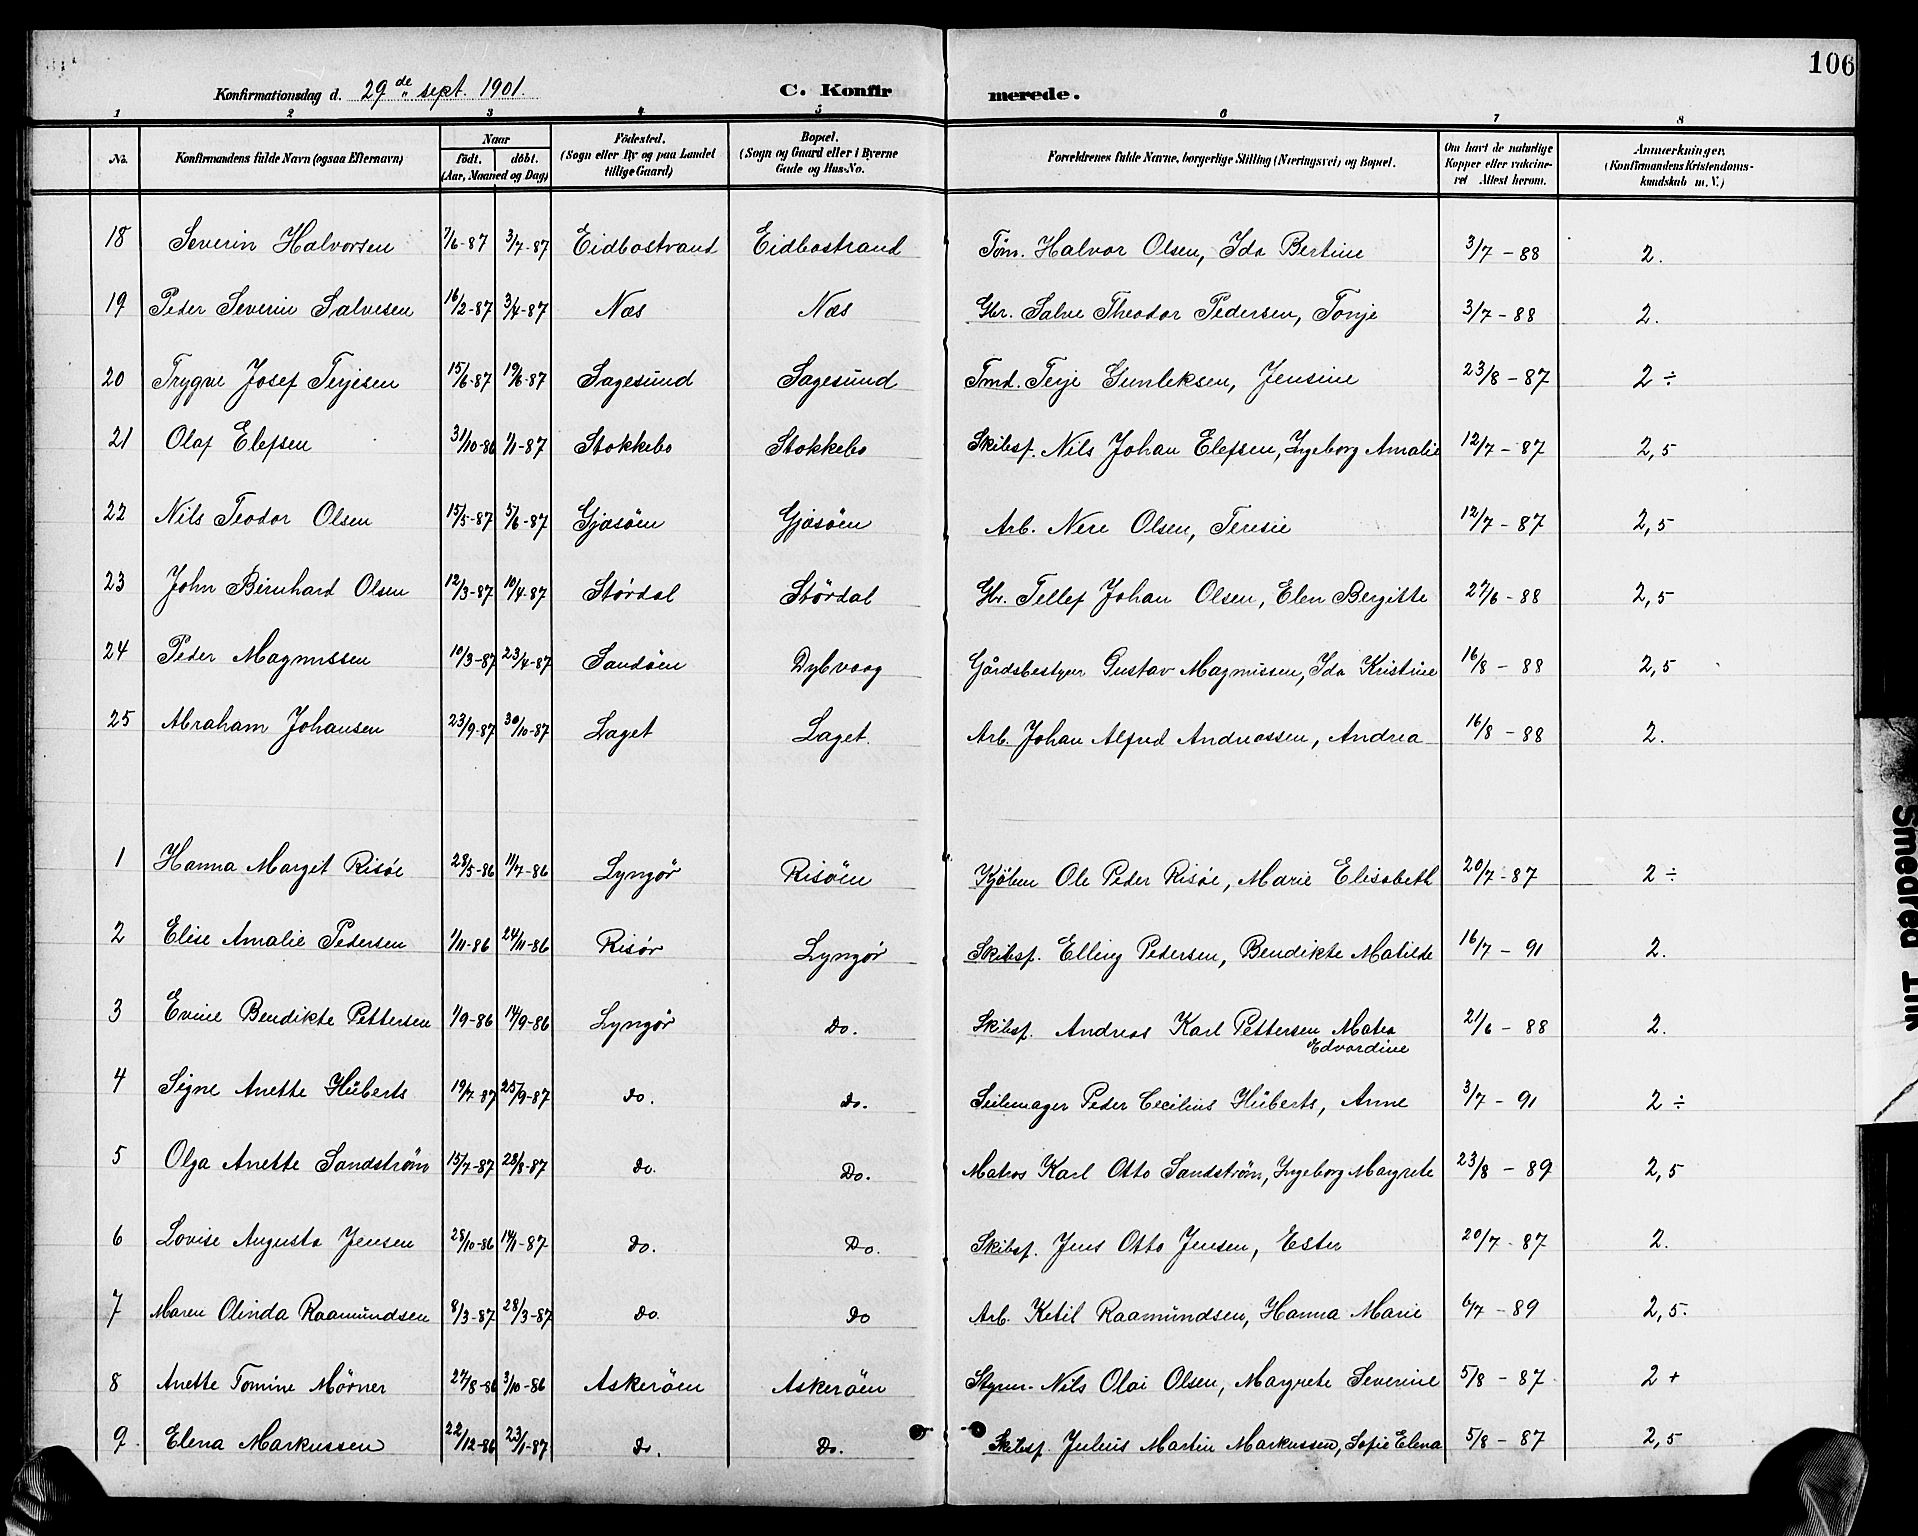 106
Konfirmationsdag d. 29de sept. 1901. C. Konfirmerede.
1 2 3 4 5 6 7 8
No. Konfirmandens fulde Navn (ogsaa Efternavn) Naar født. døbt. (Aar, Maaned og Dag) Fødested. (Sogn eller By og paa Landet tillige Gaard) Bopæl. (Sogn og Gaard eller i Byerne Gade og Hus-No. Forældrenes fulde Navne, borgerlige Stilling (Næringsvei) og Bopæl. Om havt de naturlige Kopper eller vaccineret Attest herom. Anmærkninger, (Konfirmandens Kristendomskundskab m. V.)
18 Severin Halvorsen 7/6-87 3/7-87 Eidbostrand Eidbostrand Tøm. Halvor Olsen, Ida Bertine 3/7-88 2.
19 Peder Severin Salvesen 16/2-87 3/4-87 Næs Næs Gbr. Salve Theodor Pedersen, Tonje 3/7-88 2.
20 Trygve Josef Terjesen 15/6-87 19/6-87 Sagesund Sagesund Tmd. Terje Gunleksen, Jensine 23/8-87 2 ÷
21 Olaf Elefsen 31/10-86 1/1-87 Stokkebo Stokkebo Skibsf. Nils Johan Elefsen, Ingeborg Amalie 12/7-87 2,5
22 Nils Teodor Olsen 15/5-87 5/6-87 Gjæsöen Gjæsöen Arb. Nere Olsen, Teresie 12/7-87 2,5
23 John Bernhard Olsen 12/3-87 10/4-87 Stördal Stördal Gbr. Tellef Johan Olsen, Elen Bergitte 27/6-88 2,5
24 Peder Magnussen 10/3-87 23/4-87 Sandöen Dybvaag Gårdsbestyrer Gustav Magnussen, Ida Kristine 16/8-88 2,5
25 Abraham Johansen 23/9-87 30/10-87 Laget Laget. Arb. Johan Alfred Andreassen, Andrea 16/8-88 2.
1 Hanna Margit Risøe 28/5-86 11/7-86 Lyngør Risöen Kjøbm Ole Peder Risøe, Marie Elisabeth 20/7-87 2 ÷
2 Elise Amalie Pedersen 1/11-86 24/11-86 Risør Lyngør Skibsf. Elling Pedersen, Bendikte Matilde 16/7-91 2.
3 Evine Bendikte Pettersen 1/9-86 14/9-86 Lyngør Do. Skibsf. Andreas Karl Pettersen Matea
Edvardine 21/6-88 2.
4 Signe Anette Hüberts 19/7-87 25/9-87 do. do. Seilmager Peder Cecilius Hüberts, Anne 3/7-91 2 ÷
5 Olga Anette Sandström 15/7-87 28/8-87 do. Do. Matros Karl Otto Sandström, Ingeborg Margrete 23/8-89 2,5
6 Lovise Augusta Jensen 28/10-86 14/1-87 do. Do. Skibsf. Jens Otto Jensen, Ester 20/7-87 2.
7 Maren Olinda Raamundsen 8/3-87 28/3-87 do. do Arb. Ketil Raamundsen, Hanna Marie 6/7-89 2,5.
8 Anette Tomine Mörner 27/8-86 3/10-86 Askeröen Askeröen Styrm. Nils Olai Olsen, Margrete Severine 5/8-87 2 +
9. Elena Markussen 22/12-86 23/1-87 do. Do. Skibsf. Julius Martin Markussen, Sofie Elena 5/8-87 2,5
Smedred Ink